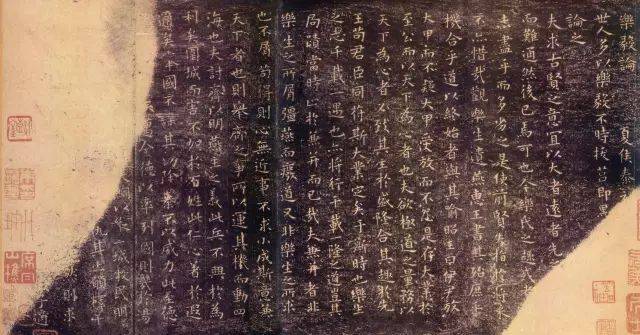 樂毅論 夏侯泰
世人多以樂毅不時拔莒即墨
論之
夫求古賢之意宜以大者遠者先
而難通然後已焉可也今樂氏之趣或
盡乎而多劣之是使前賢失指於將來
不亦惜哉觀樂生遺燕惠王書其殆庶乎
機合乎道以終始者與其喻昭王曰伊尹放
大甲而不疑大甲受放而不怨是存大業於
至公而以天下為心者也夫欲極道之量務以
天下為心者必致其主於盛隆合其趣於先
王苟君臣同符斯大業定矣于斯時也樂生
之志千載一遇也亦將行千載一隆之道豈其
局蹟當時止於兼并而已哉夫兼并者非
樂生之所屑彊燕而廢道又非樂生之所求
也不屑苟得則心無近事不求小成斯意兼
天下者也則舉齊之事所以運其機而動四
海也夫討齊以明燕主之義此兵不興於為
利矣圍城而害不加於百姓此仁心著於遐
邇矣舉國不謀其功除暴不以威力此至德
全德以率列國則幾於湯